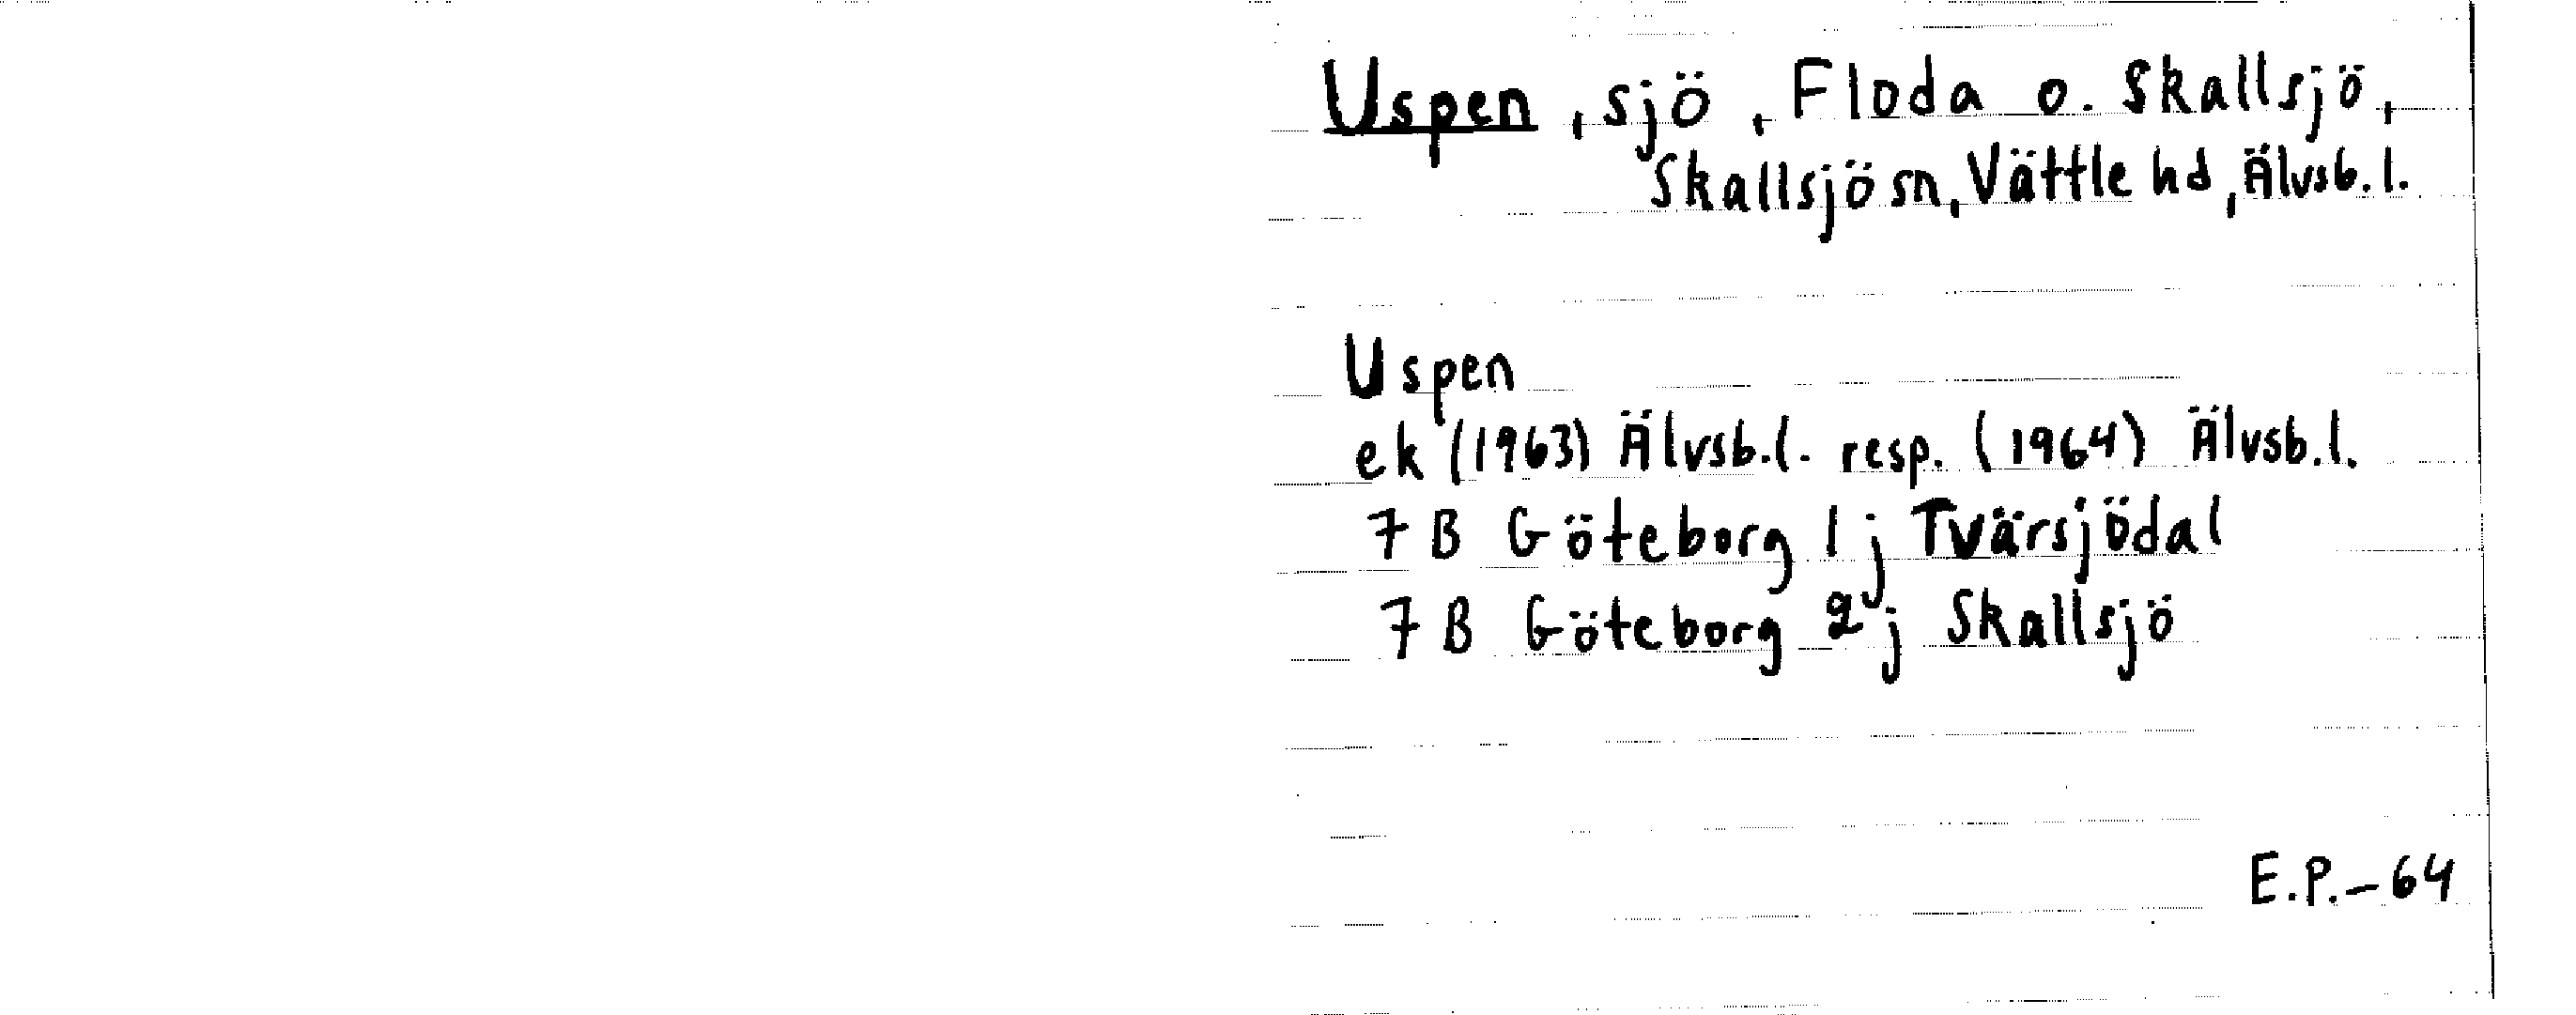 Uspen, sjö, Floda o. Skallsjö,
Skallsjö sn, Vättle hd, Älvsb.l.
Uspen
ek (1963) Älvsb.l. resp. (1964) Älvsb.l.
7 B Göteborg 1 j Tvärsjödal
7 B Göteborg 2 j Skallsjö
E.P.-64